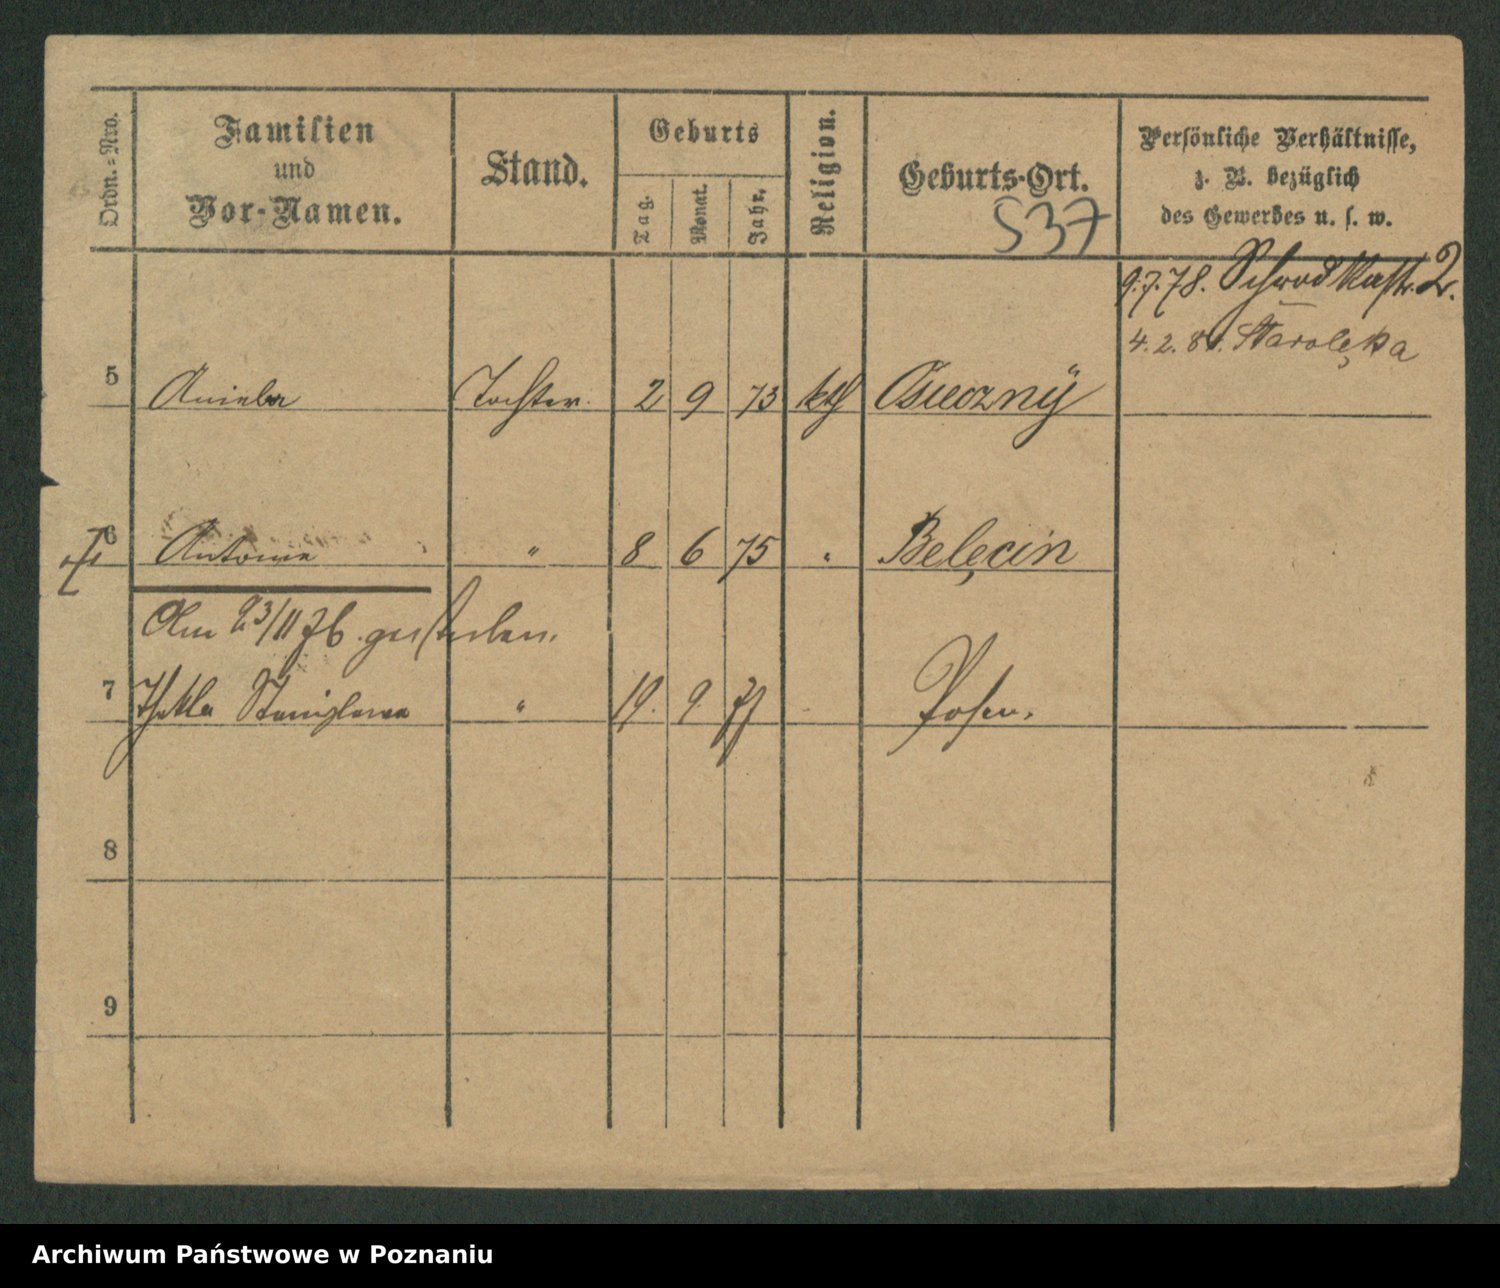 Ordn.-Nro.
Familien
und
Vor-Namen.
Stand.
Geburts
Tag.
Monat.
Jahr.
Religion.
Geburts-Ort.
537
Persönliche Verhältnisse,
z. B. bezüglich
des Gewerbes u. s. w.
9.7.78. Schrodkastr. 2.
4.2.81. Starolęka
5 Aniela Tochter. 2 9 73 kth
6 Antonie " 8 6 75 " Belęcin
Am 23/11 76. gestorben.
7 Thekla Stanislawa " 19. 9. 77 Posen.
8
9
Archiwum Państwowe w Poznaniu